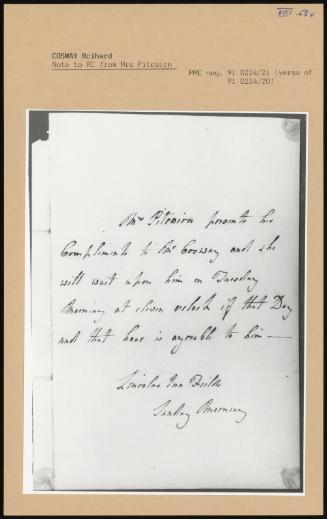 VIII.
COSWAY Reihard
Note to RC from Mrs Pitcairn
PMC neg. 91 0214/21 (verso of
91 0214/20)
Mrs Pitcairn presents her
Compliments to Mr Cosway and she
will wait upon him on Tuesday
Morning at eleven oclock if that Day
and that hour is agreable to him —
Lincolns Inn Fields
Sunday Morning